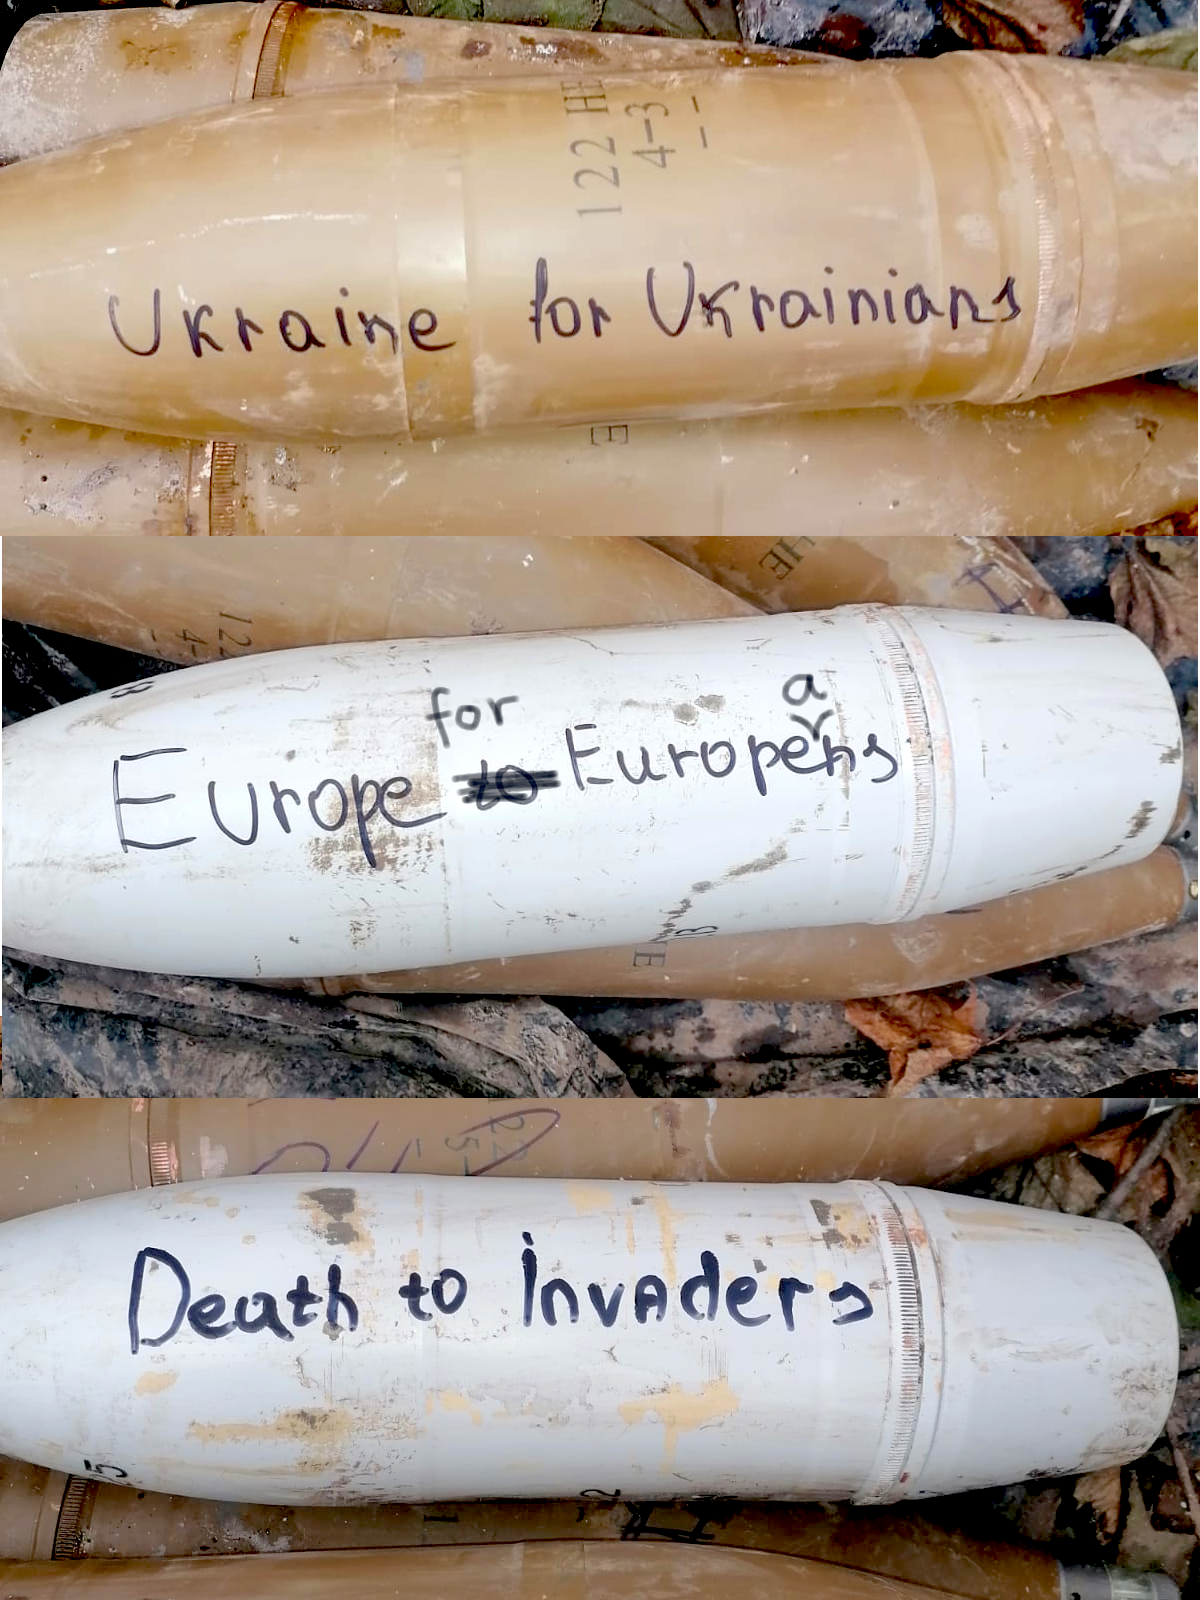 122 HE
4-3
Ukraine for Ukrainians
E
HE
122
4-
for
a
Europe to Europens
E
Death to invaders
5
2